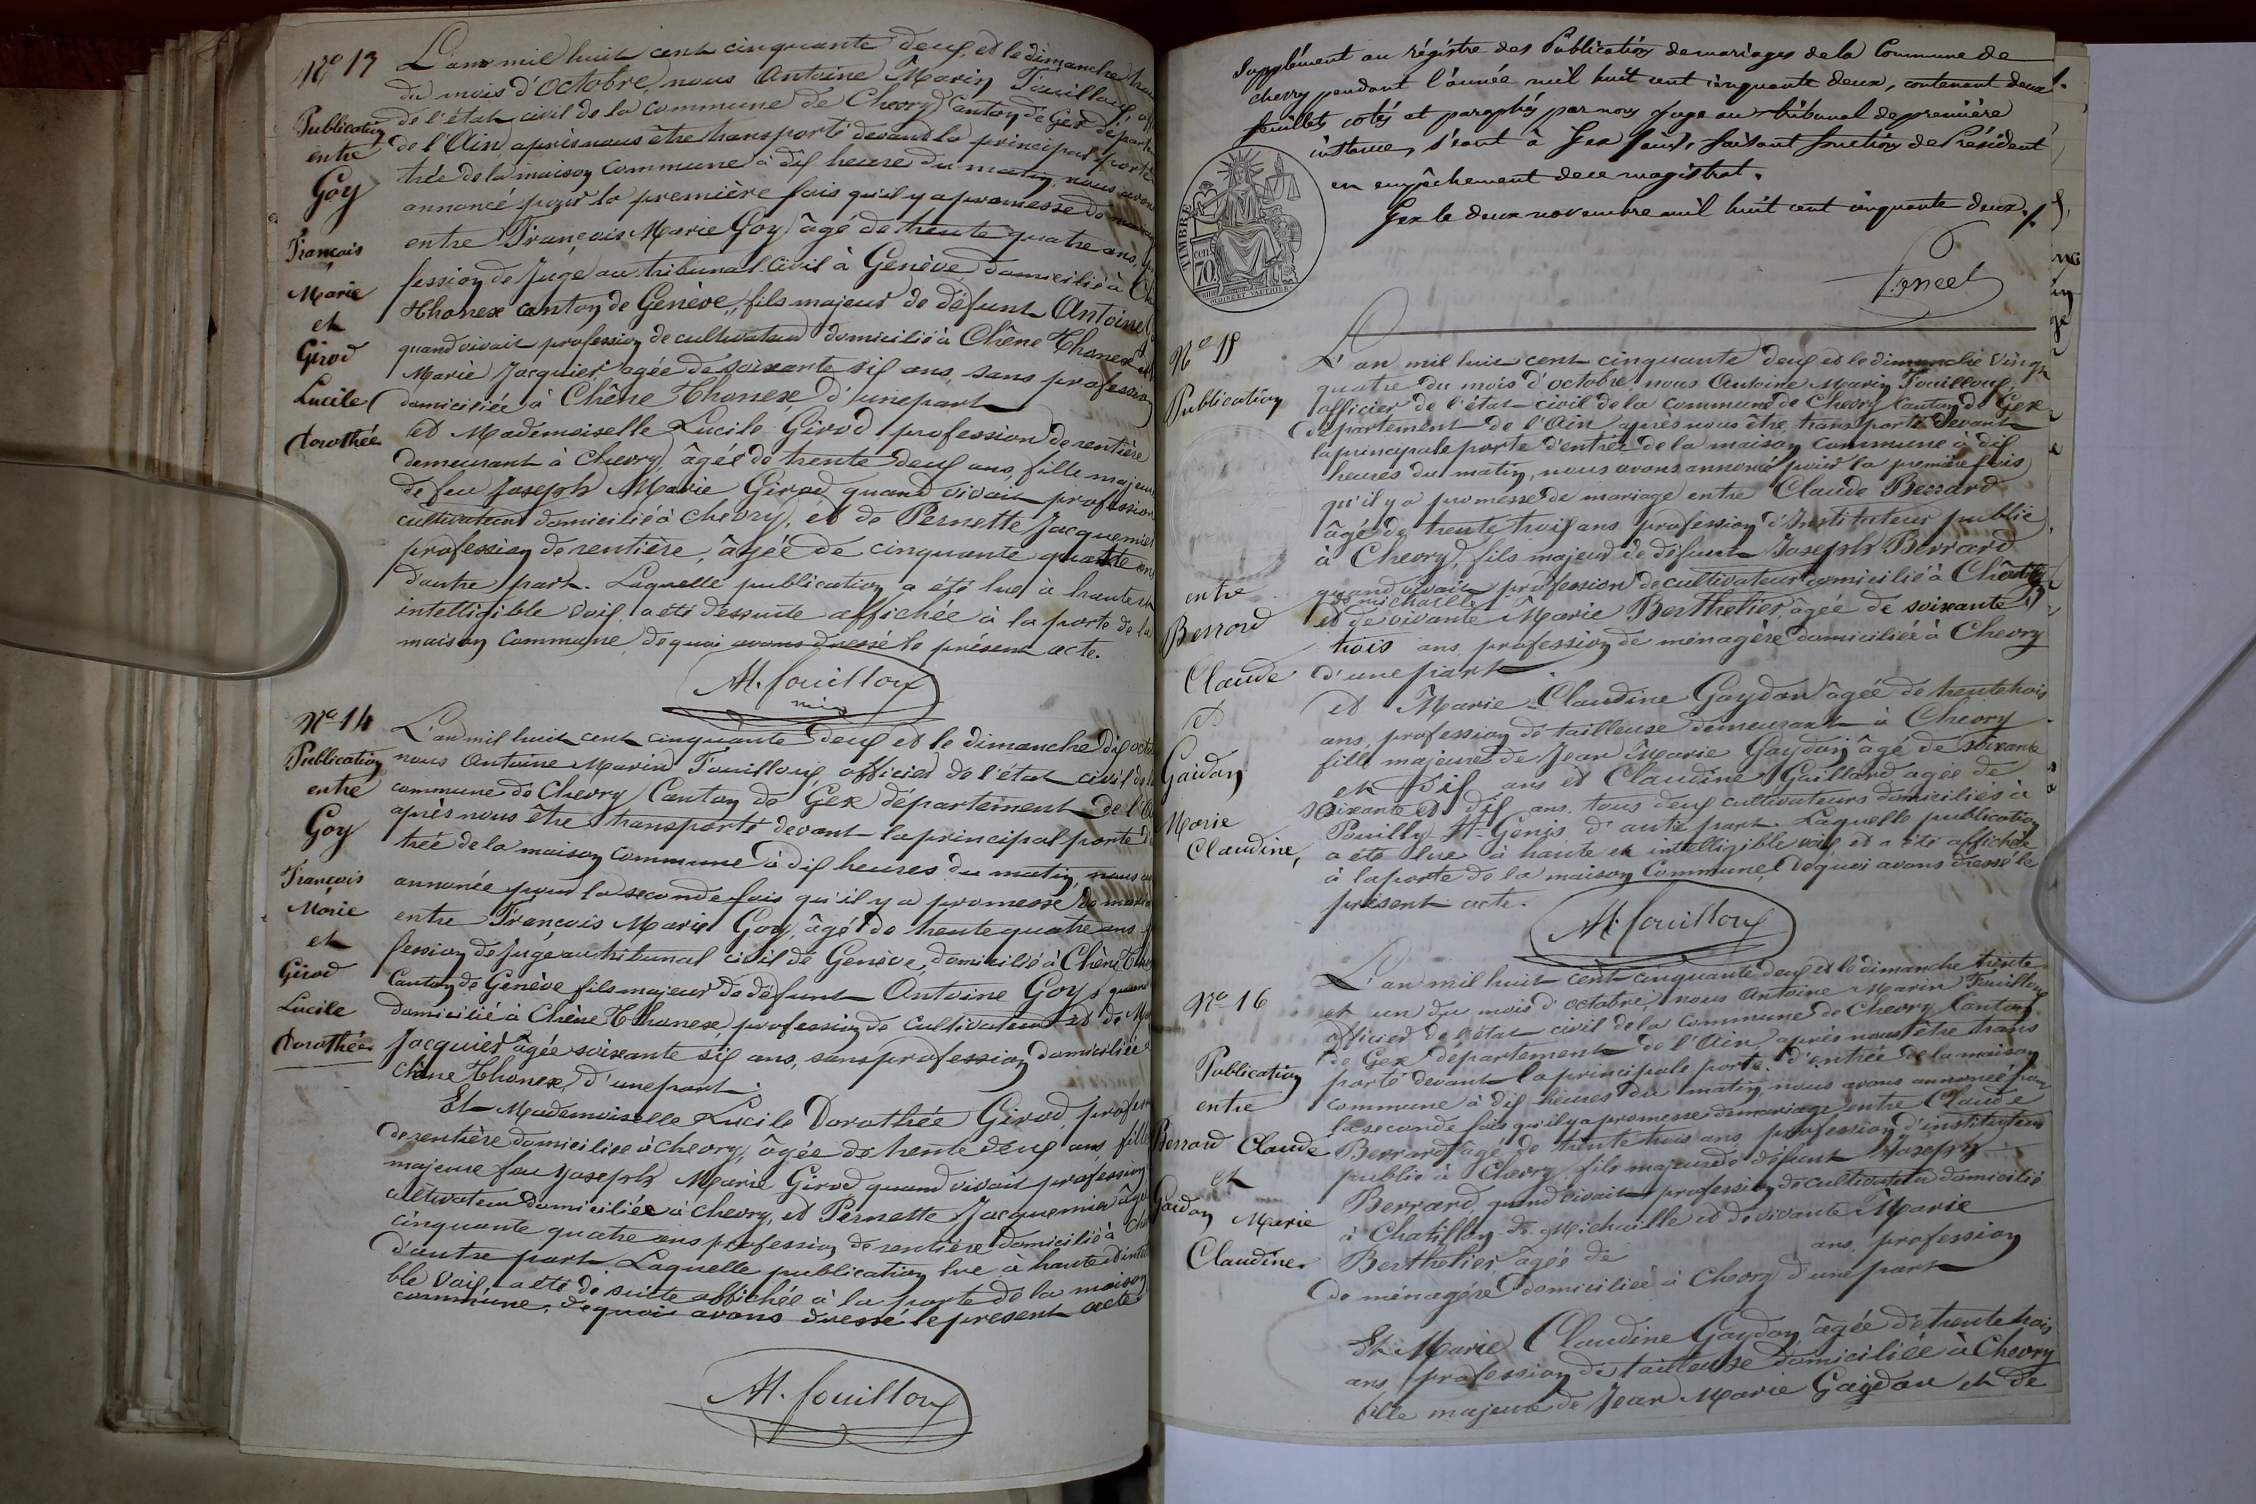 Nº 13
Publication
entre
Goy
François
Marie
et
Girod
Lucile
dorothée
L'an mil huit cent cinquante deux, et le dimanche
du mois d'Octobre, nous Antoine Marin Fouilloux
de l'état civil de la commune de Chevry Canton de Gex
de l'Ain, après nous être transporté devant la principal porte
trée de la maison commune à dix heure du matin, nous avons
annoncé pour la première fois qu'il y a promesse de
entre François Marie Goy âgé de trente quatre ans,
fession de Juge au tribunal Civil à Genève, domicilié à
Thonex canton de Genève, fils majeur de défunt Antoine
quand vivait profession de cultivateur domicilié à Chêne Thonex
Marie Jacquier agée de soixante six ans, sans profession
domiciliée à Chêne Thonex, d'une part
et Mademoiselle Lucile Girod, profession de rentière
demeurant à Chevry, âgée de trente deux ans, fille majeure
de feu Joseph Marie Girod quand vivait profession
cultivateur domicilié à Chevry, et de Pernette Jacquemier
profession de rentière, âgée de cinquante quatre ans
d'autre part. Laquelle publication a été lue à haute et
intelligible voix, a été dessuite affichée à la porte de la
maison Commune, de quoi avons dressé le présent acte.
At. fouilloux
Nº 14
Publication
entre
Goy
François
Marie
et
Girod
Lucile
dorothée
L'an mil huit cent cinquante deux et le dimanche dix
nous Antoine Marin Fouilloux, officier de l'état civil de la
commune de Chevry Canton de Gex département de
après nous être transporté devant la principal porte
trée de la maison commune à dix heures du matin, nous
annoncée pour la seconde fois qu'il y a promesse de
entre François Marie Goy, âgé de trente quatre ans
fession de Juge au tribunal civil de Genève, domicilié à Chêne
Canton de Genève fils majeur de défunt Antoine Goy, quand
domicilié à Chêne Thonex, profession de cultivateur et de
Jacquier âgée soixante six ans, sans profession domiciliée
Chêne Thonex, d'une part.
Et Mademoiselle Lucile Dorothée Girod,
de rentière domiciliée à Chevry, âgée de trente deux ans, fille
majeure feu Joseph Marie Girod quand vivait profession
cultivateur domiciliée à Chevry, et Pernette Jacquemier
cinquante quatre ans profession de rentière domicilié à
d'autre part. Laquelle publication lue à haute
ble voix a été de suite affichée à la porte de la maison
commune, de quoi avons dressé le present acte
At. fouilloux
Supplément au régistre des Publications de mariages de la Commune de
Chevry pendant l'année mil huit cent cinquante deux, contenant deux
feuillets cotés et paraphés par nous Juge au tribunal de première
instance, séant à Gex (ain), faisant fonctions de Président
en empêchement de ce magistrat.
Gex le deux novembre mil huit cent cinquante deux.
TIMBRE
70
Nº 15
Publication
entre
Berrard
Claude
et
Gaidon
Marie
Claudine,
L'an mil huit cent cinquante deux et le dimanche vingt
quatre du mois d'octobre, nous Antoine Marin Fouilloux,
officier de l'état civil de la commune de Chevry Canton de Gex
département de l'Ain, après nous être transporté devant
la principale porte d'entrée de la maison Commune à dix
heures du matin, nous avons annoncé pour la première fois
qu'il y a promesse de mariage entre Claude Berrard
âgé de trente trois ans profession d'Instituteur public
à Chevry, fils majeur de défunt Joseph Berrard
quand vivait profession de cultivateur domicilié à Châtillon
de michaille
et de vivante Marie Berthelier, âgée de soixante
trois ans, profession de ménagère domiciliée à Chevry
d'une part.
et Marie Claudine Gaydon âgée de trente trois
ans, profession de tailleuse demeurant à Chevry
fille majeure de Jean Marie Gaydon âgé de soixante
et dix ans et Claudine Gaillard agée de
soixante et dix ans, tous deux cultivateurs domiciliés à
Pouilly St. Genis d'autre part. Laquelle publication
a été lue à haute et intelligible voix et a été affichée
à la porte de la maison Commune, de quoi avons dressé le
présent acte.
At. fouilloux
Nº 16
Publication
entre
Berrard Claude
et
Gaidon Marie
Claudine.
L'an mil huit cent cinquante deux et le dimanche trente
et un du mois d'octobre, nous Antoine Marin Fouilloux
officier de l'état civil de la commune de Chevry Canton
de Gex département de l'Ain, après nous être trans
porté devant la principale porte d'entrée de la maison
commune à dix heures du matin, nous avons annoncé pour
la seconde fois qu'il y a promesse de mariage entre Claude
Berrard âgé de trente trois ans, profession d'instituteur
public à Chevry, fils majeur de défunt Joseph
Berrard, quand vivait profession de cultivateur domicilié
à Chatillon de Michaille et de vivante Marie
Berthelier, âgée de ans, profession
de ménagère domiciliée à Chevry d'une part
Et Marie Claudine Gaydon âgée de trente trois
ans, profession de tailleuse domiciliée à Chevry
fille majeure de Jean Marie Gaydon et de